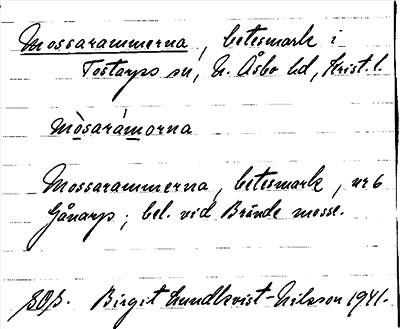 Mossarammerna, betesmark i
Tostarps sn, N. Åsbo hd, Krist. l.
mòsarámorna
Mossarammerna, betesmark, nr 6
Gånarp; bel. vid Brände mosse.
Birgit Lundkvist-Nilsson 1941.